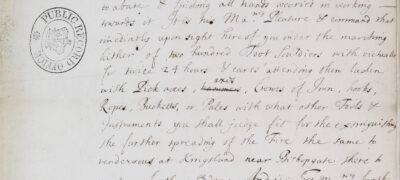 to abate & finding all hands wearied in working —
towards it It is his Ma.ties Pleasure & command that
im̄ediately upon sight hereof you order the marching
hither of two hundred Foot Souldiers with victualls
for twice 24 hours & carts attending them laden
with Pick axes, axes Crowes of Iron, hooks,
Ropes, Bucketts, or Pales with what other Tools &
Instruments you shall judge fit for the extinguishing
the further spreading of the Fire the same to
rendezvous at Kingsland near Bishopgate there to
PUBLIC RECORD OFFICE